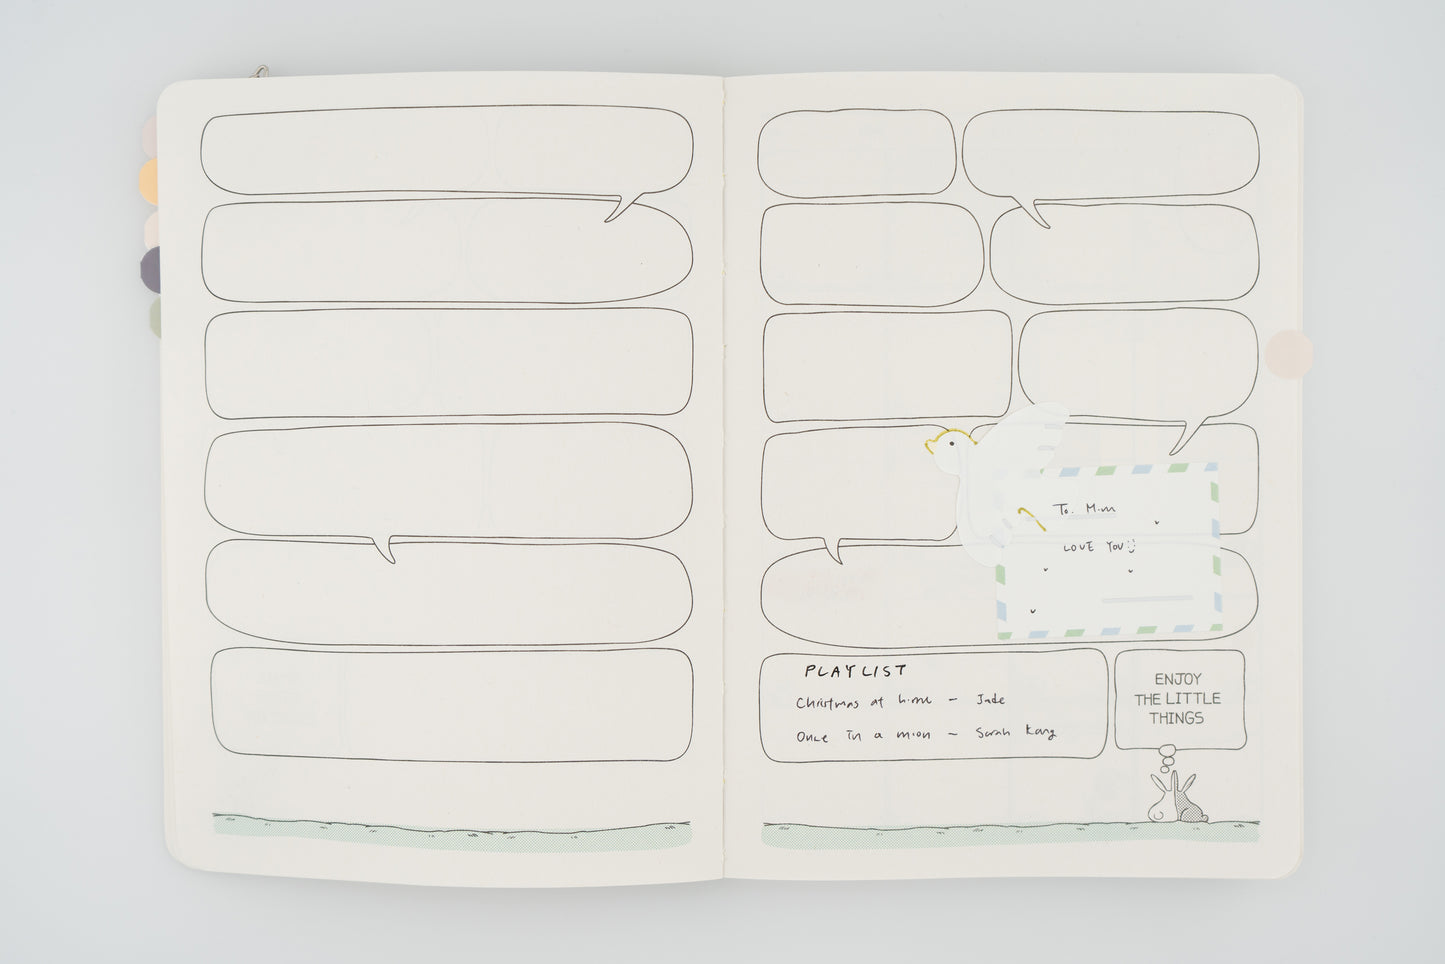 To. Mim
LOVE YOU
PLAYLIST
Christmas at home - Jade
Once in a moon - Sarah Kang
ENJOY
THE LITTLE
THINGS